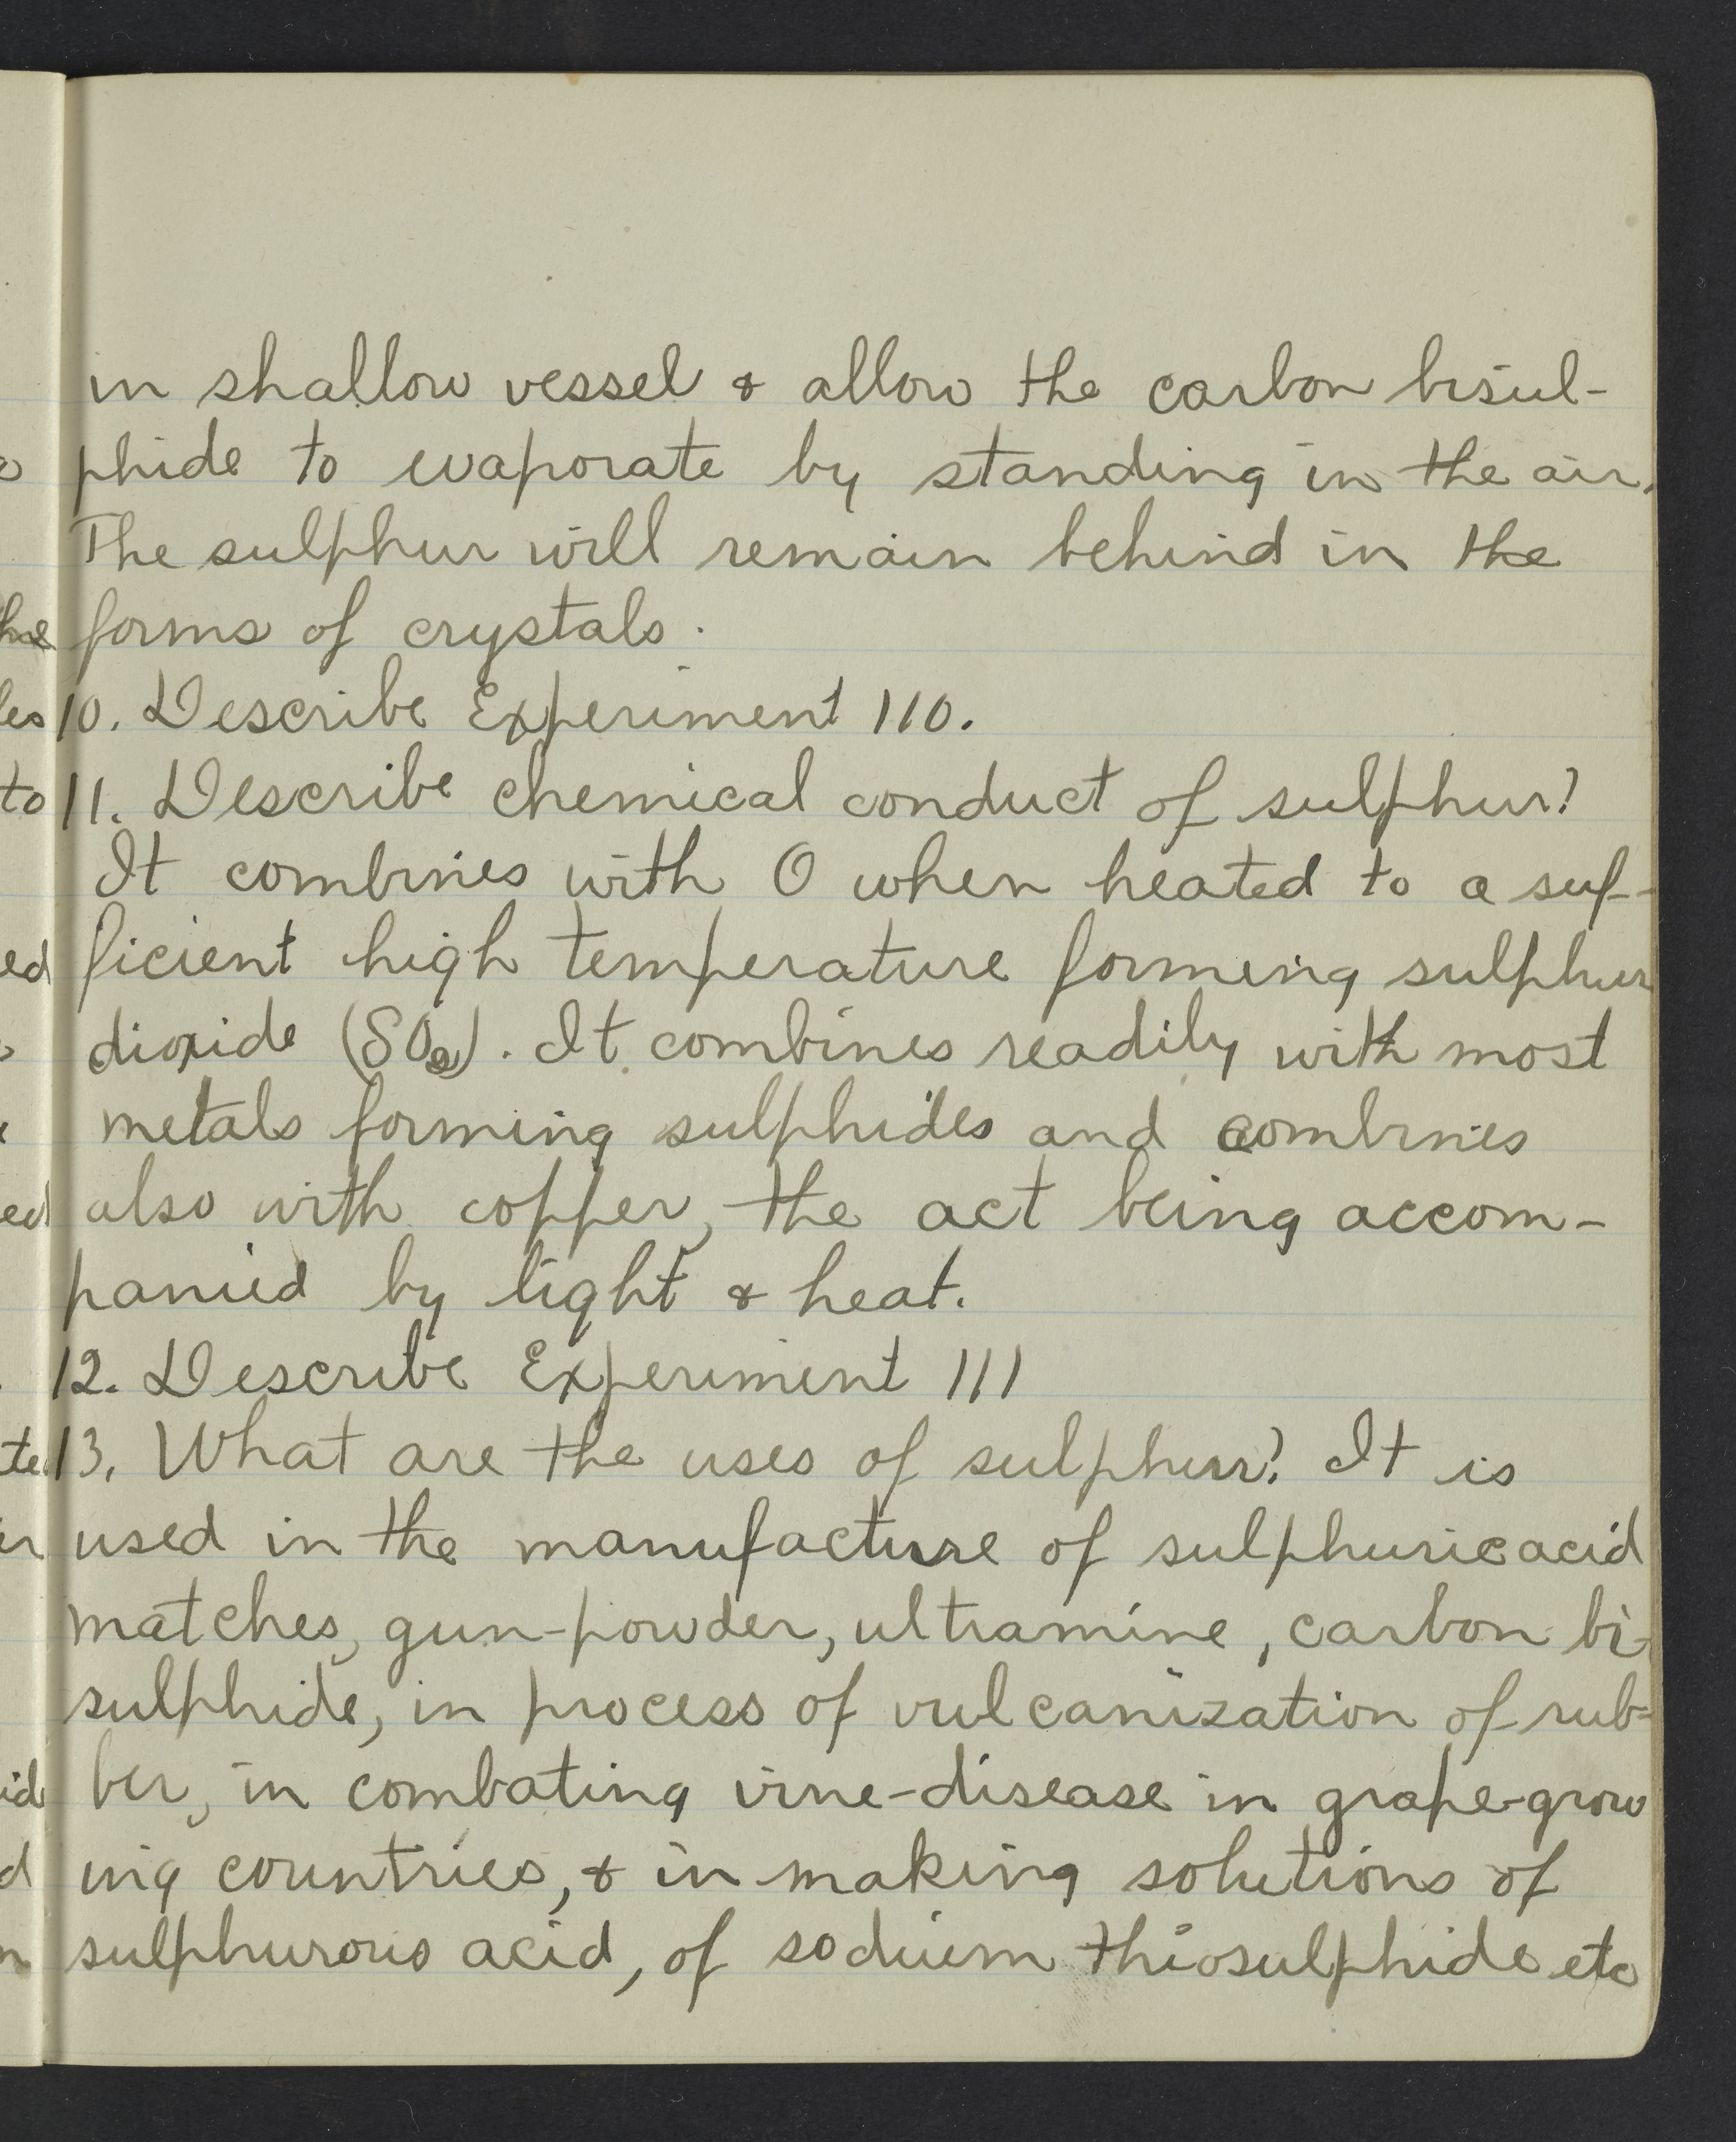 in shallow vessel & allow the carbon bisul-
phide to evaporate by standing in the air.
The sulphur will remain behind in the
forms of crystals.
10. Describe Experiment 110.
11. Describe chemical conduct of sulphur?
It combines with O when heated to a suf-
ficient high temperature forming sulphur
dioxide (SO2). It combines readily with most
metals forming sulphides and combines
also with copper, the act being accom-
panied by light & heat.
12. Describe Experiment 111
13. What are the uses of sulphur? It is
used in the manufacture of sulphuric acid
matches, gun-powder, ultramine, carbon bi-
sulphide, in process of vulcanization of rub-
ber, in combating vine-disease in grape-grow
ing countries, & in making solutions of
sulphurous acid, of sodium thiosulphide etc